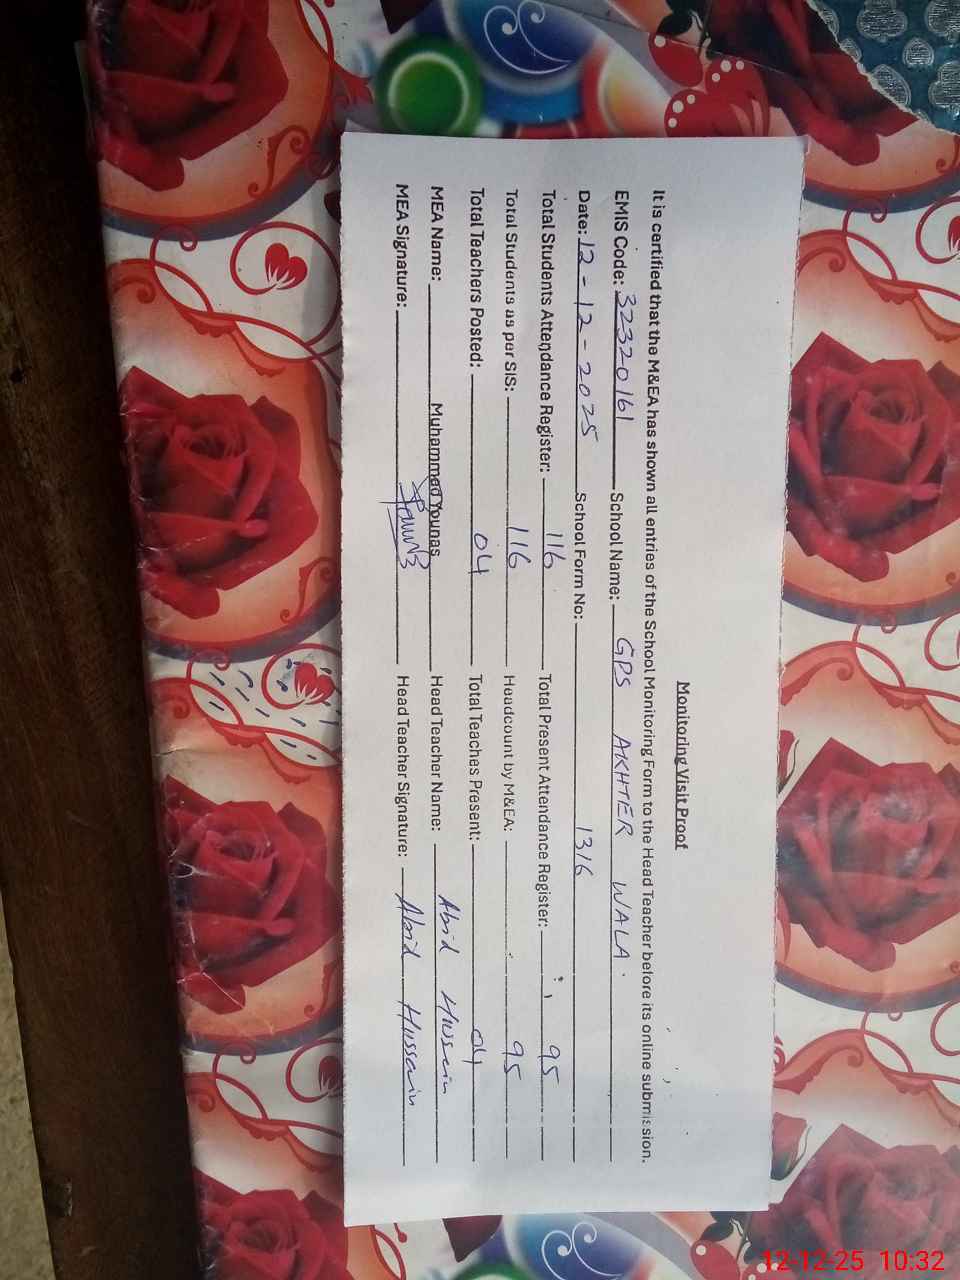 Monitoring Visit Proof
It is certified that the M&EA has shown all entries of the School Monitoring Form to the Head Teacher before its online submission.
EMIS Code: 32320161 School Name: GPS AKHTER WALA
Date: 12-12-2025 School Form No: 1316
Total Students Attendance Register: 116 Total Present Attendance Register: 95
Total Students as per SIS: 116 Headcount by M&EA: 95
Total Teachers Posted: 04 Total Teaches Present: 04
MEA Name: Muhammad Younas Head Teacher Name: Abid Hussain
MEA Signature: Head Teacher Signature: Abid Hussain
12-12-25 10:32